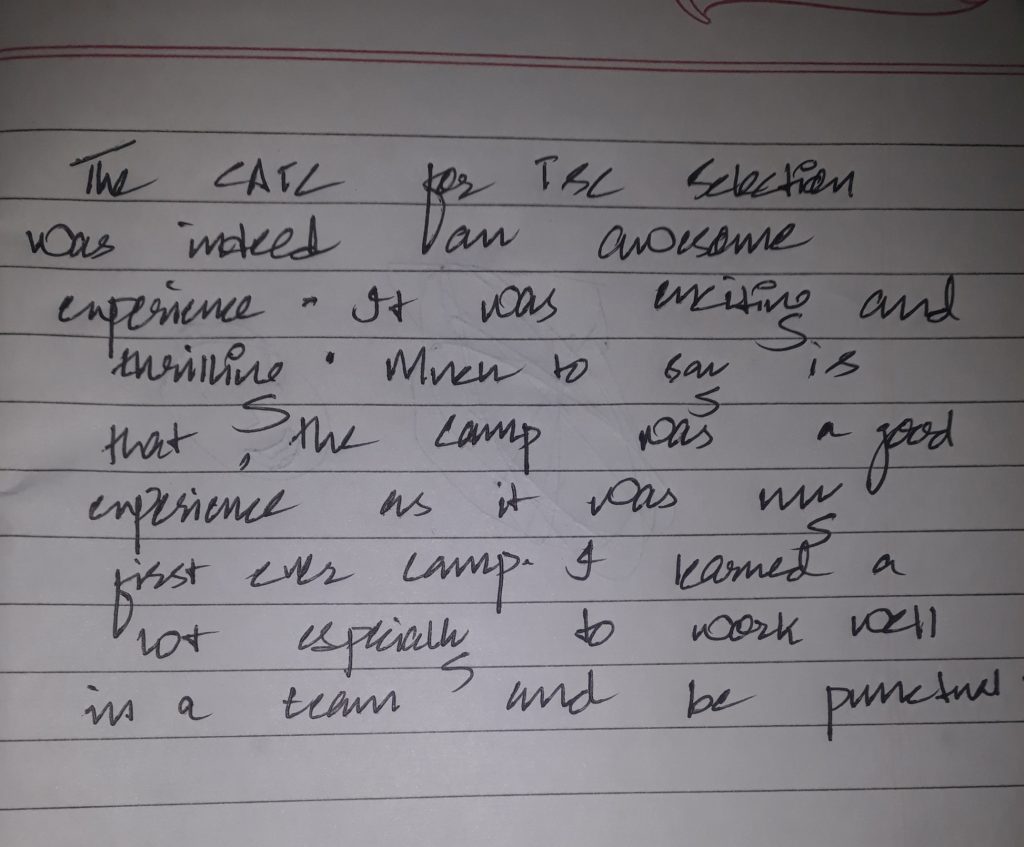 The CATC for TSC Selection
was indeed an awesome
experience. It was exciting and
thrilling. Much to say is
that, the camp was a good
experience as it was my
first ever camp. I learned a
lot especially to work well
in a team and be punctual.